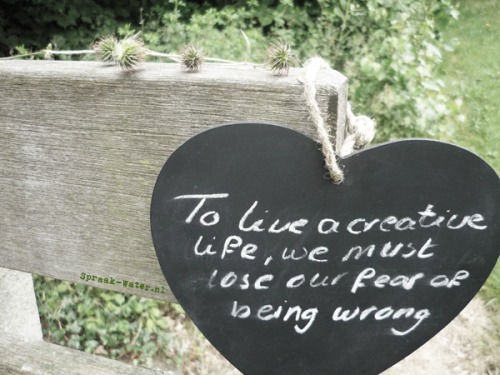 To live a creative
life, we must
lose our fear of
being wrong
Spraak-water.nl